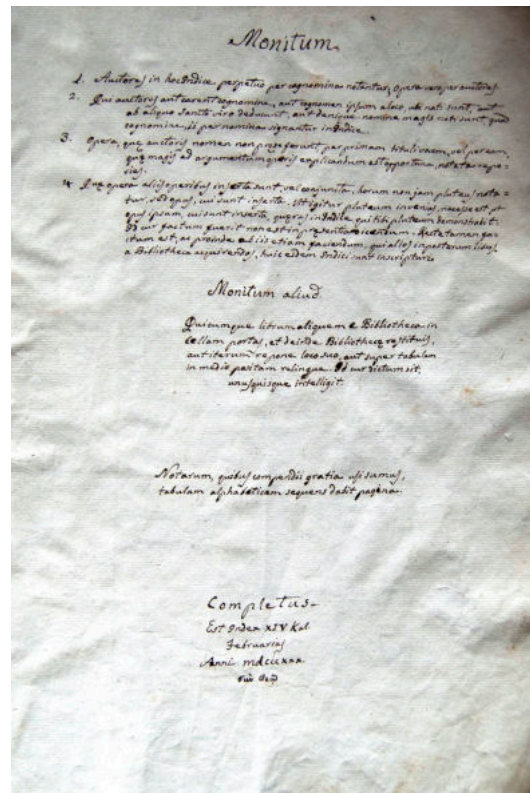 Monitum.
1. Auctores in hoc Indice perpetuo per cognomina notantur, opera vero per auctores.
2. Qui auctores aut carent cognomine, aut cognomen ipsum a loco, ubi nati sunt, aut
ab aliquo Sancto viro deducunt, aut denique nomine magis noti sunt, quam
cognomine, ii per nomina signantur in Indice.
3. Opera, quę auctoris nomen non preseferunt, per primam tituli vocem, vel per eam,
quę magis ad argumentum operis explicandum est opportuna, notata repe-
ries.
4. Quę opera aliis operibus inserta sunt, vel conjuncta, horum non jam pluteus nota=
tur, sed opus, cui sunt inserta. Ut igitur pluteum invenias, necesse est, ut
opus ipsam, cui sunt inserta, quęras in Indice, qui tibi pluteum demonstrabit.
Id cur factum fuerit non est in presentia dicendum. Recte tamen fac
tum est, ac proinde ab iis etiam faciendum, qui alios in posterum libros,
a Bibliotheca acquirendos, huic eidem Indici sunt inscripturi.
Monitum aliud.
Quicumque librum aliquem e Bibliotheca in
Cellam portas, et deinde Bibliothecę restituis,
aut iterum repone loco suo, aut super tabulam
in medio positam relinque. Id cur dictum sit,
unusquisque intelligit.
Notarum, quibus compendii gratia usi sumus,
tabulam alphabeticam sequens dabit pagina.
Completus
Est Index XIV Kal
Februarias
Anni MDCCCXXX.